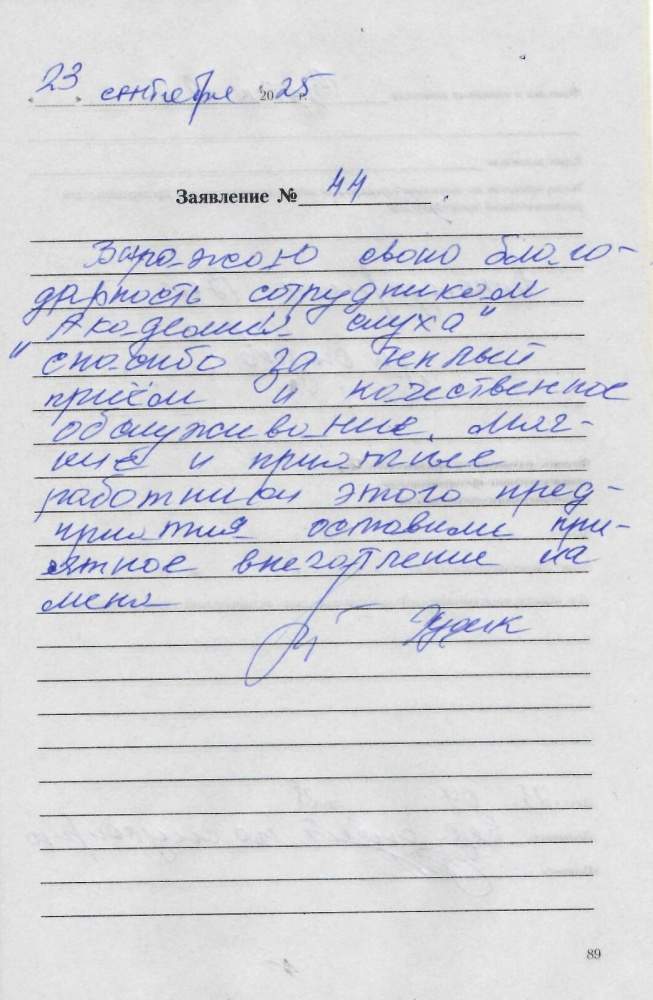 23 сентября 2025 г.
Заявление № 44
Выражаю свою благо-
дарность сотрудникам
"Академии слуха"
спасибо за теплый
приём и качественное
обслуживание. Мяг-
кие и приятные
работники этого пред-
приятия оставили при-
ятное впечатление на
меня
89